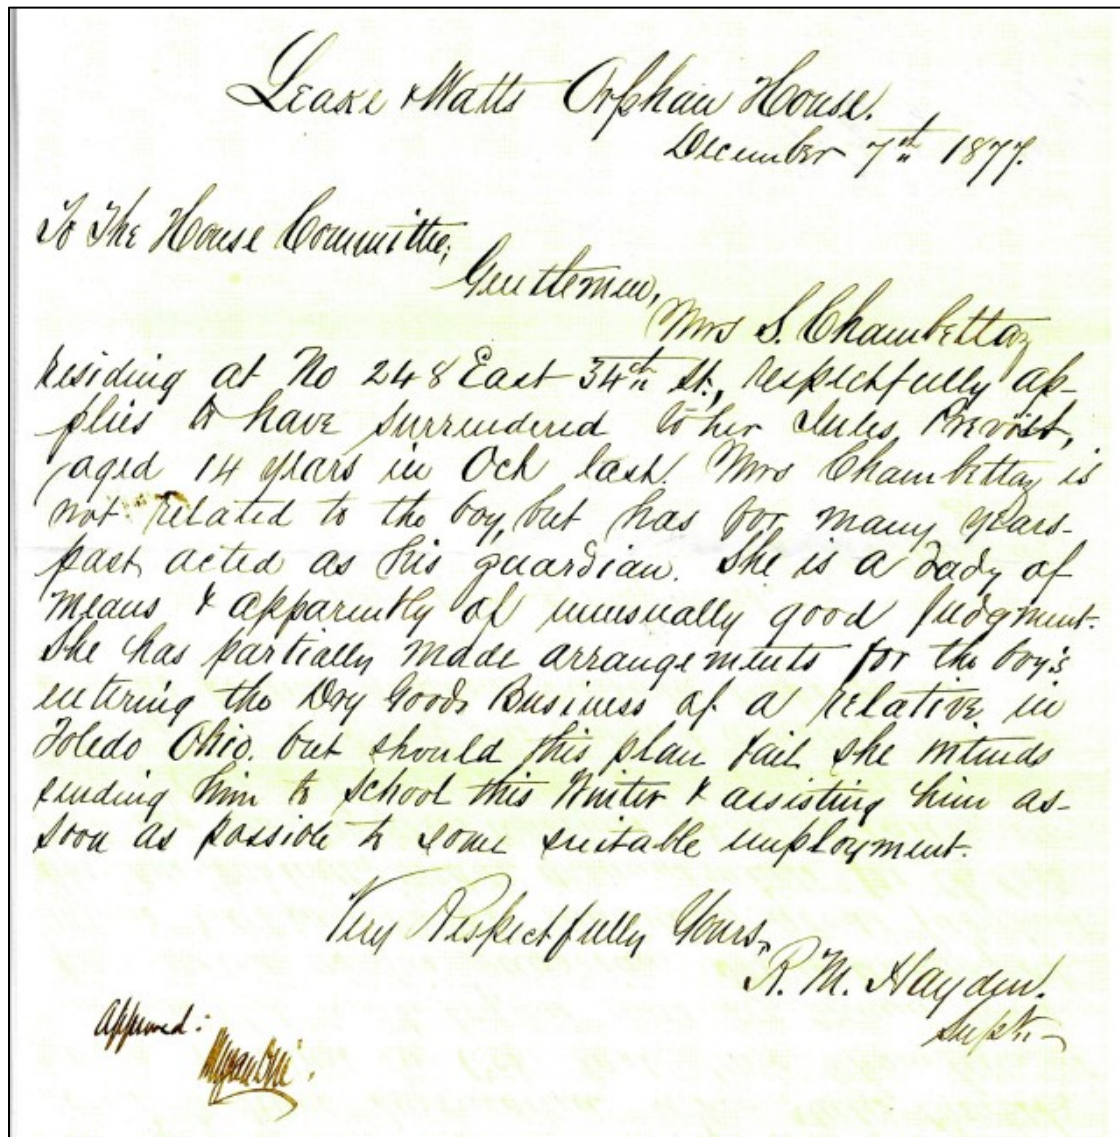 Leake & Watts Orphan House.
December 7th 1877.
To The House Committee,
Gentlemen,
Mrs S. Chambettaz
residing at No 248 East 34th St., respectfully ap-
plies to have surrendered to her Jules Prevost,
aged 14 years in Oct last. Mrs Chambettaz is
not related to the boy, but has for many years
past, acted as his guardian. She is a Lady of
means & apparently of unusually good Judgment.
She has partially made arrangements for the boy's
entering the Dry Goods Business of a relative in
Toledo Ohio. but should this plan fail she intends
sending him to school this Winter & assisting him as
soon as possible to some suitable employment.
Very Respectfully Yours,
R. M. Hayden.
Supt.
Approved: